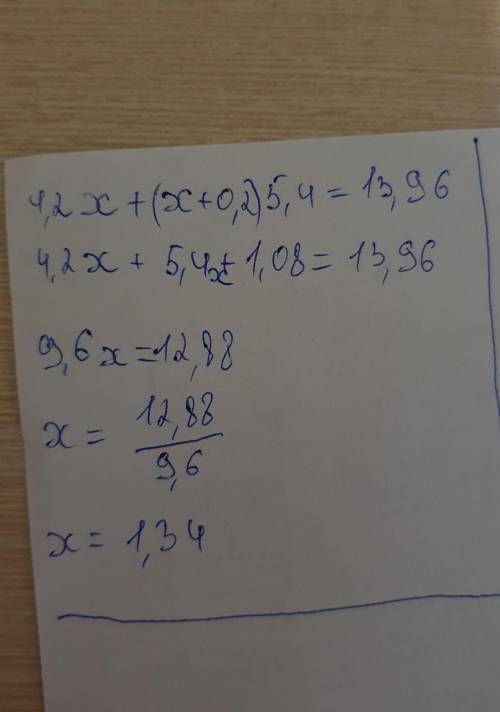 4,2x + (x+0,2)5,4 = 13,96
4,2x + 5,4x + 1,08 = 13,96
9,6x = 12,88
x = 12,88/9,6
x = 1,34